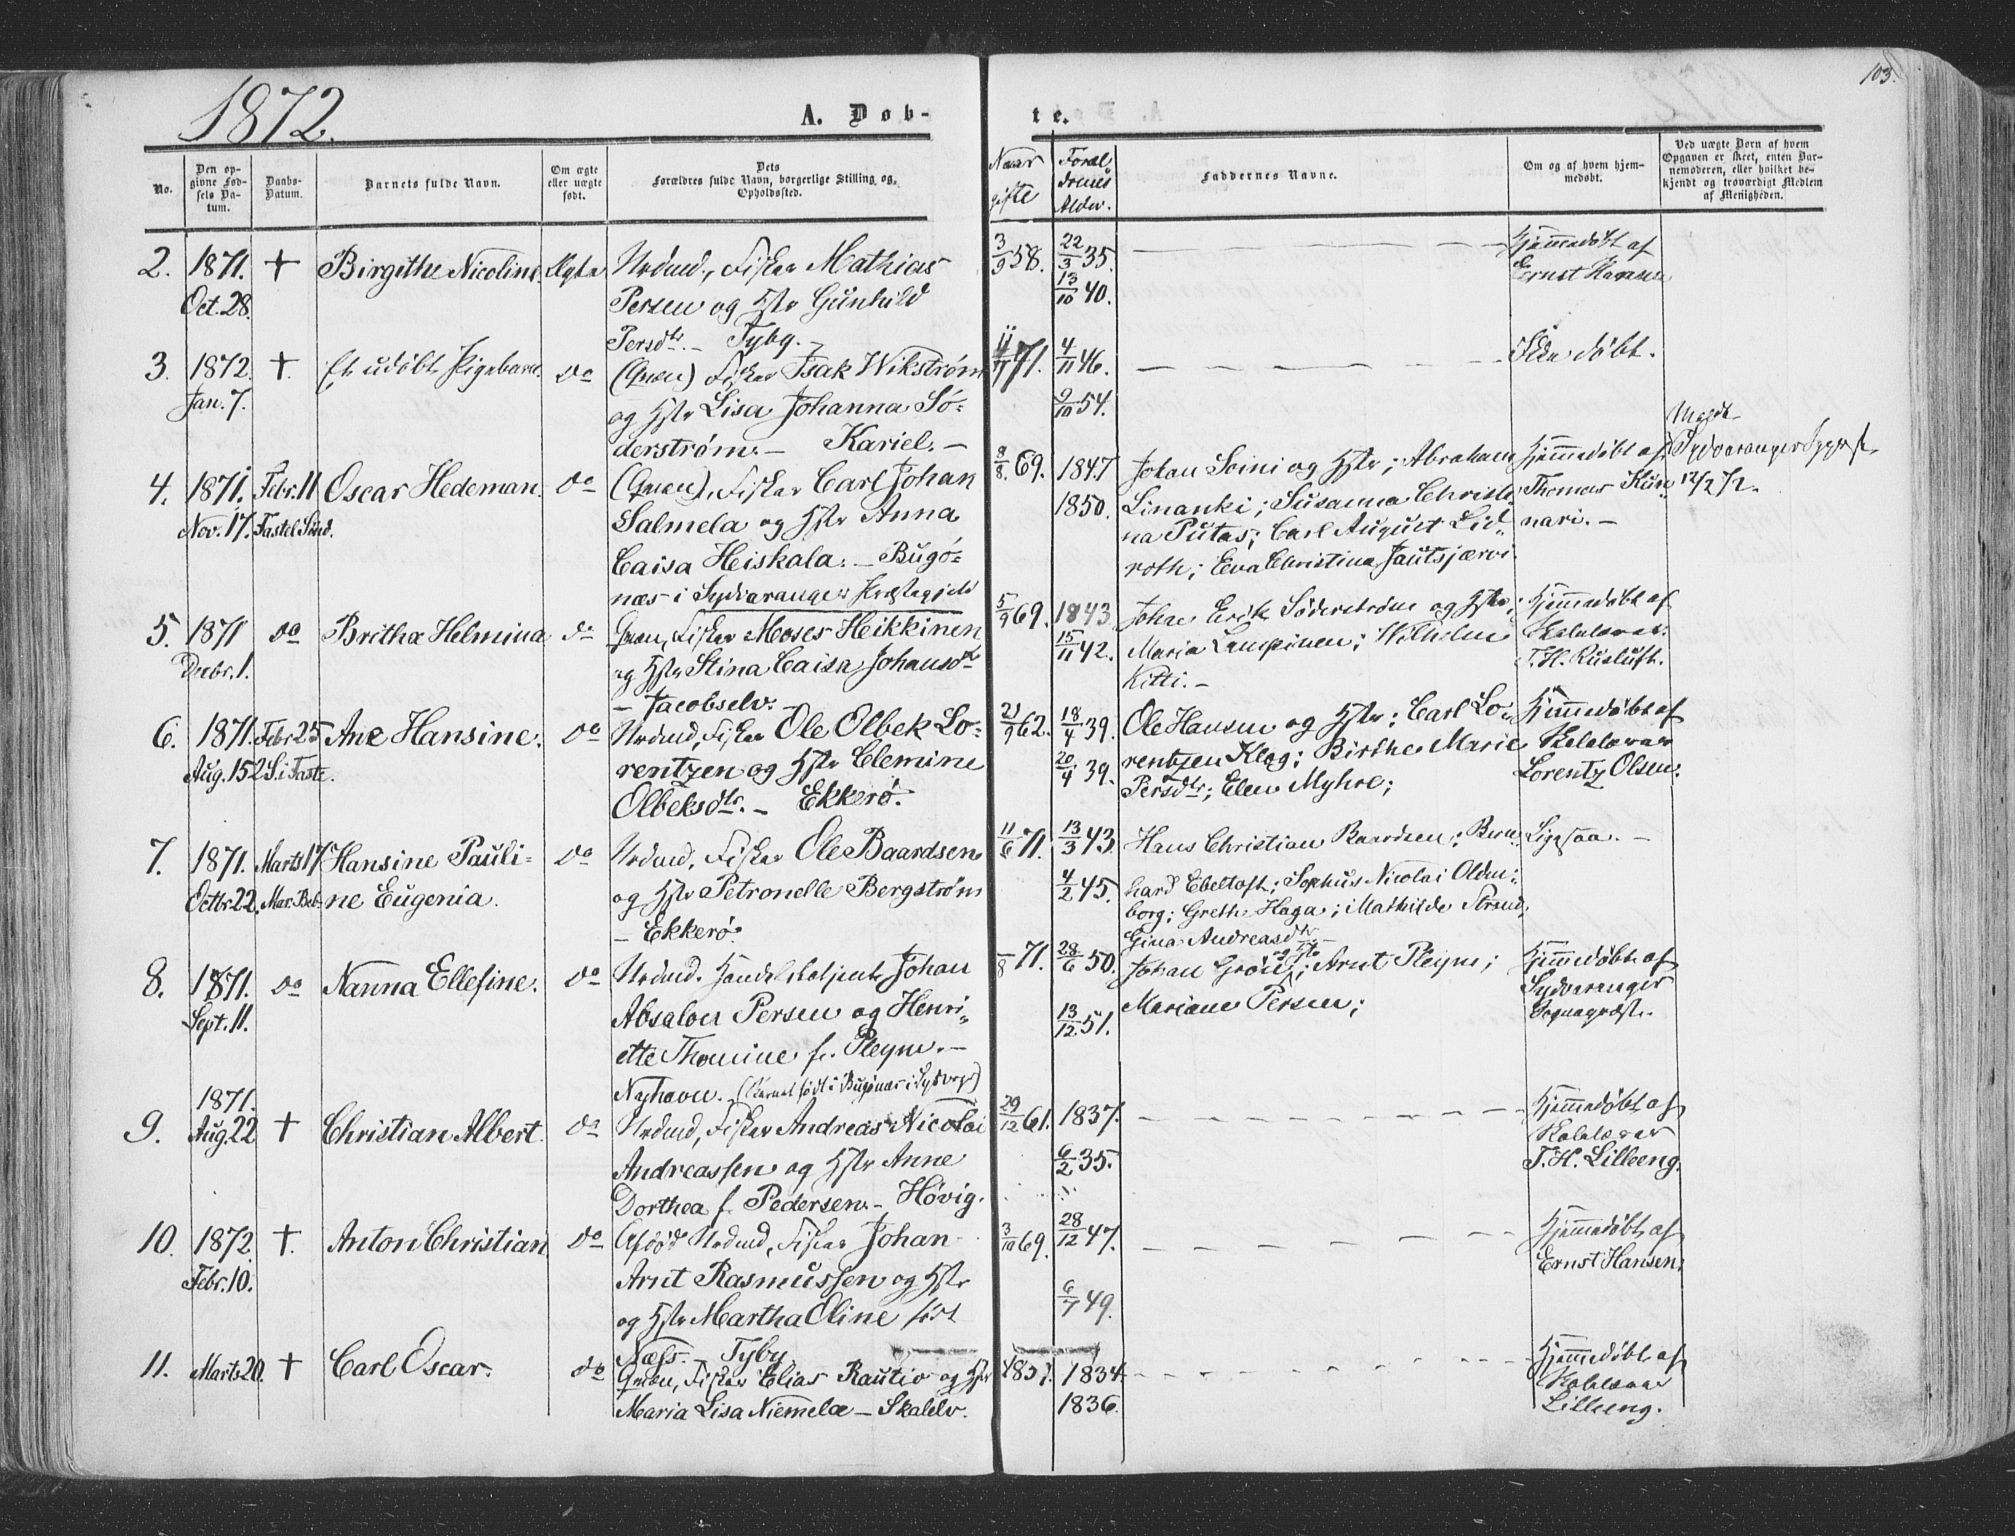 1872.
A. Døb-
te.
103.
No.
Den op-
givne Fød-
sels Da-
tum.
Daabs-
Datum.
Barnets fulde Navn.
Om ægte
eller uægte
født.
Dets
Forældres fulde Navn, borgerlige Stilling og
Opholdssted.
Naar
gifte
Foræl
drenes
Alder.
Faddernes Navne.
Om og af hvem hjem-
medøbt.
Ved uægte Børn af hvem
Opgaven er skeet, enten Bar-
nemoderen, eller hvilket be-
kjendt og troværdigt Medlem
af Menigheden.
2. 1871. Oct. 28. + Birgithe Nicoline Ægte
Nrdmd., Fisker Mathias
Persen og Hstr Gunhild
Persdtr. - Tyby. -
3/9 58. 22/3 35.
13/10 40.
Hjemmedøbt af
Ernst Hansen
3. 1872. Jan. 7. +. Et udøbt Pigebarn. do
(Qvæn) Fisker Isak Wikstrøm
og Hstr Lisa Johanna Sö-
derstrøm. - Kariel. -
11/11 71. 4/11 46.
9/10 54.
Ikke døbt.
4. 1871. Nov. 17. Febr. 11 Fastel. Sønd. Oscar Hedeman. do
(Qvæn), Fisker Carl Johan
Salmela og Hstr Anna
Caisa Heiskala. - Bugö-
næs i Sydvaranger Præstegjeld
8/8 69. 1847
1850.
Johan Soini og Hstr; Abraham
Linanki; Susanna Christi-
na Putas; Carl August Lid-
roth; Eva Christina Jautsjærvi
Hjemmedøbt af
Thomas Kiin-
nari. -
Meddt
Sydvaranger Sogpr.
12/2 72.
5. 1871 Decbr. 1. do Britha Helmina do
Qvæn, Fisker Moses Heikkinen
og Hstr Stina Caisa Johansdtr
- Jacobselv. -
5/9 69. 1843
15/11 42.
Johan Erik Söderström og Hstr;
Maria Lampinen; Wilhelm
Kitti. -
Hjemmedøbt af
Skolelærer
T. H. Rusluft.
6. 1871. Aug. 15 Febr 25 2 S. i Faste. Ane Hansine. do
Nrdmd, Fisker Ole Olbek Lo-
rentzen og Hstr Clemine
Olbeksdtr. - Ekkerö.
21/9 62. 18/4 39.
20/4 39.
Ole Hansen og Hstr; Carl Lo-
rentzen Klog; Birthe Marie
Persdtr; Elen Myhre;
Hjemmedøbt af
Skolelærer
Lorentz Olsen.
7. 1871. Octbr. 22. Marts 17 Mar. Beb. Hansine Pauli-
ne Eugenia. do
Nrdmd, Fisker Ole Baardsen
og Hstr Petronelle Bergström
- Ekkerö.
11/6 71. 13/3 43.
4/2 45.
Hans Christian Baardsen; Bern-
hard Ebeltoft; Sophus Nicolai Olden-
borg; Grethe Haga; Mathilde Strand,
Gina Andreasdtr -
Ligesaa. -
8. 1871. Sept. 11. do Nanna Ellefine. do
Nrdmd. Handelsbetjent Johan
Absalon Persen og Henri-
ette Thomine f. Pleym. -
Nyhavn. (Barnet født i Bugønæs i Sydvrgr)
/8 71. 28/6 50.
13/12 51.
Johan Grön og Hstr; Arnt Pleym;
Mariane Persen;
Hjemmedøbt af
Sydvaranger
Sognepræst.
9. 1871. Aug. 22 + Christian Albert. do
Nrdmd, Fisker Andreas Nicolai
Andreassen og Hstr Anne
Dorthea f. Pedersen. - Høvig.
29/12 61. 1837.
6/2 35.
Hjemmedøbt af
Skolelærer
T. H. Lilleeng.
10. 1872 Febr. 10. +. Anton Christian do
Afdød Nrdmd, Fisker Johan
Arnt Rasmussen og Hstr
og Hstr Martha Oline født
Næss. - Tyby
3/10 69. 28/12 47.
6/7 49.
Hjemmedøbt af
Ernst Hansen.
11. Marts 20. + Carl Oscar. do
Qvæn, Fisker Elias Rautio og Hstr
Maria Lisa Niemelæ - Skalelv.
1857. 1834.
1836.
Hjemmedøbt af
Skolelærer
Lilleeng.